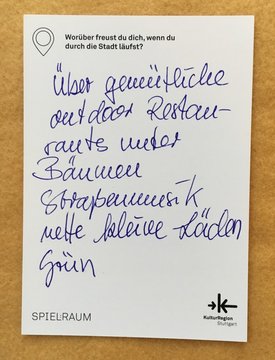 Worüber freust du dich, wenn du
durch die Stadt läufst?
Über gemütliche
outdoor Restau-
rants unter
Bäumen
Straßenmusik
nette kleine Läden
Grün
SPIEL:RAUM
KulturRegion
Stuttgart